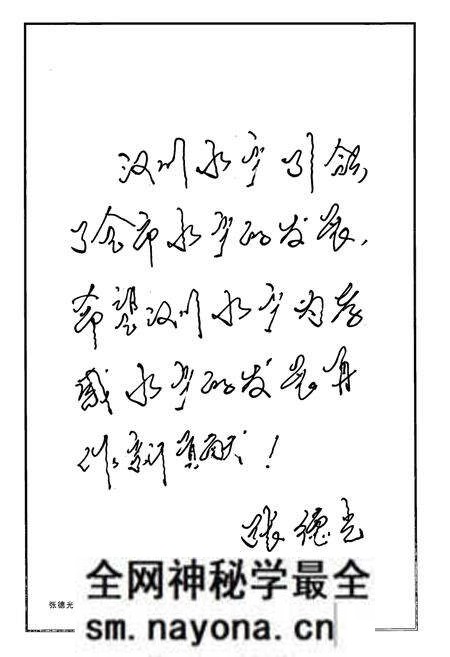 汉川水产引领
了全市水产的发展,
希望汉川水产为孝
感水产的发展再
作新贡献!
张德光
张德光
全网神秘学最全
sm.nayona.cn